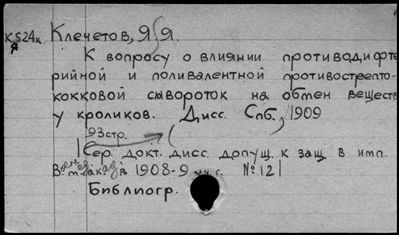 К524к Клечетов, Я. Я.
Я
К вопросу о влиянии противодифте
рийной и поливалентной противострепто-
кокковой сывороток на обмен веществ
у кроликов. Дисс. Спб., 1909
93стр. (
|Сер. докт. дисс. допущ. к защ. в имп.
В 1908-9 уч. г. № 12|
Библиогр.